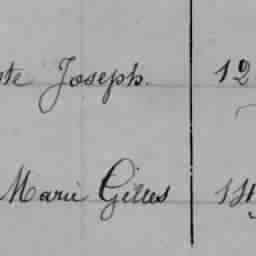 te Joseph. 12
Marie Gilles